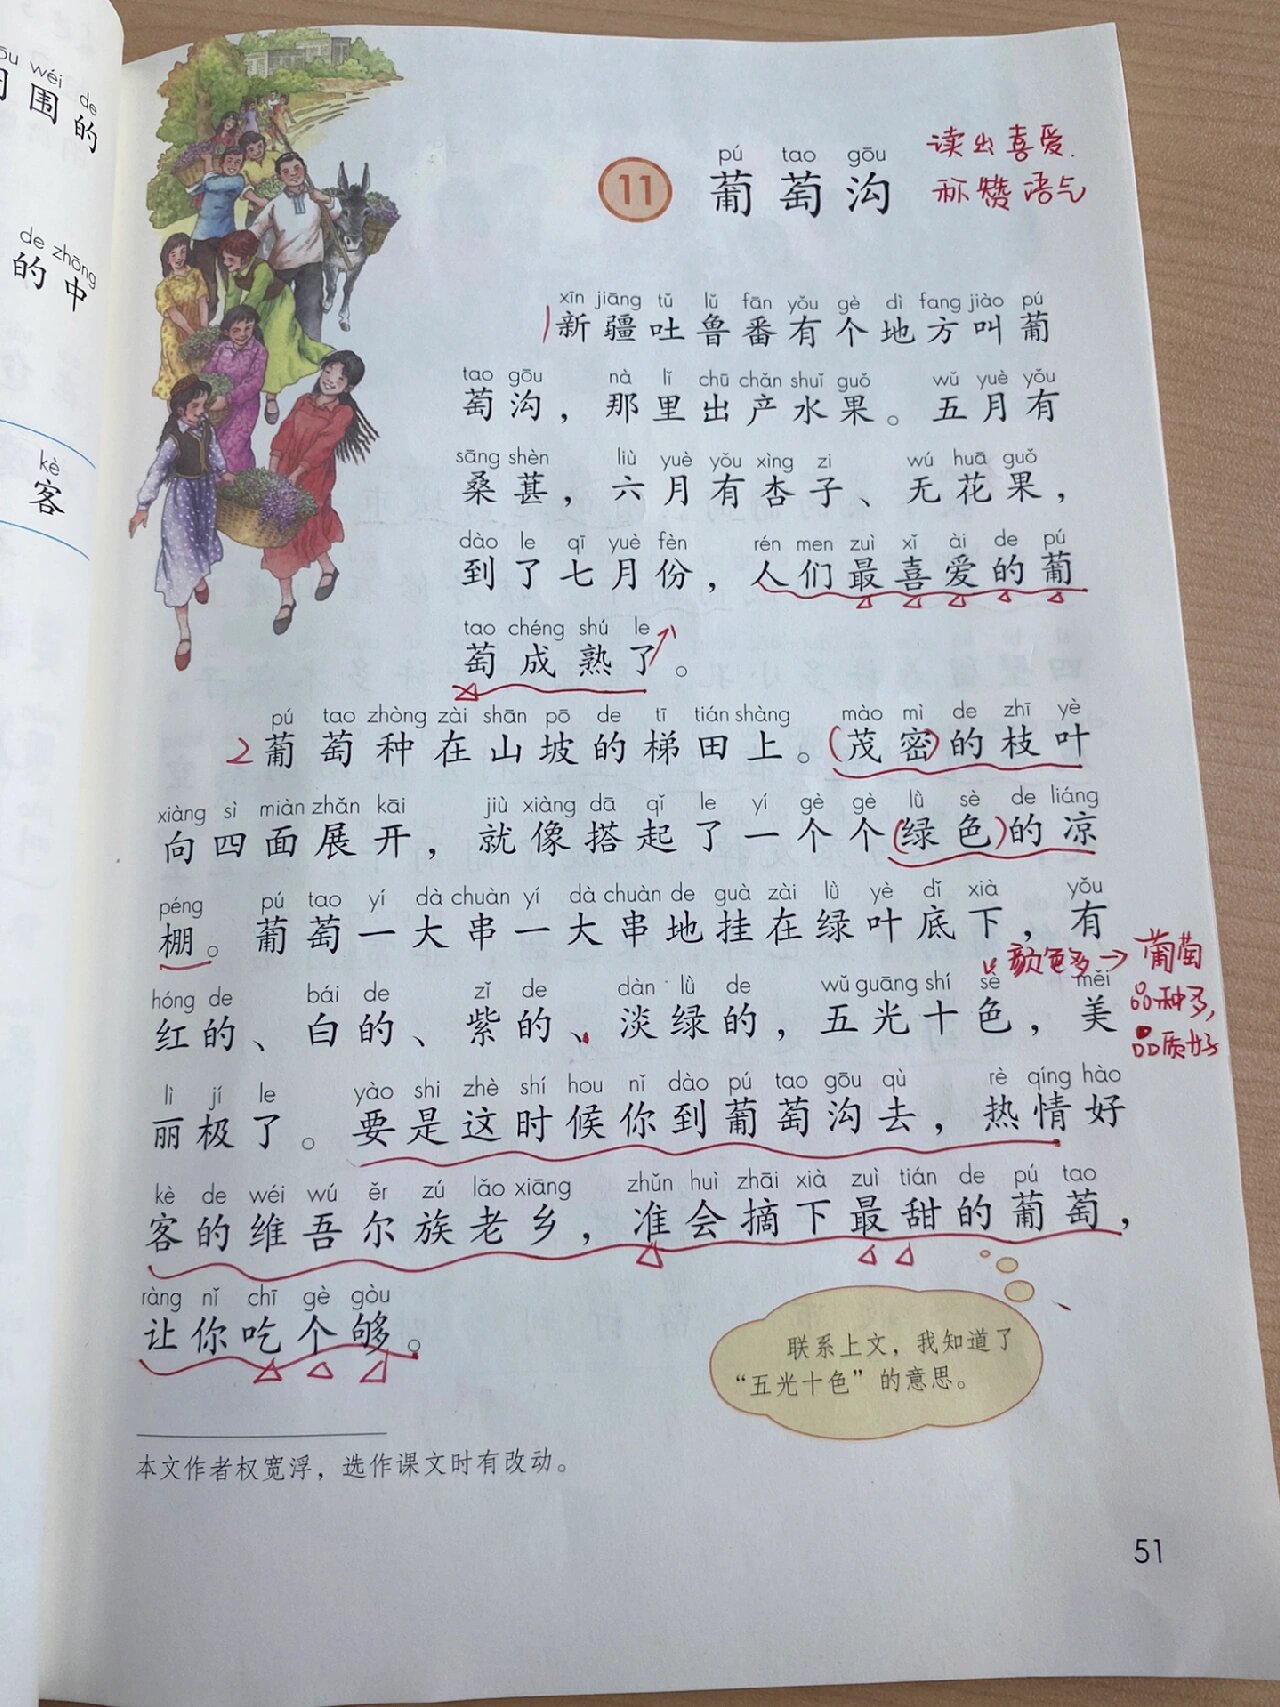 ōu wéi de
围的
de zhōng
的中
kè
客
pú tao gōu
11 葡萄沟
读出喜爱
称赞语气
xīn jiāng tǔ lǔ fān yǒu gè dì fang jiào pú
1 新疆吐鲁番有个地方叫葡
tao gōu nà lǐ chū chǎn shuǐ guǒ wǔ yuè yǒu
萄沟，那里出产水果。五月有
sāng shèn liù yuè yǒu xìng zi wú huā guǒ
桑葚，六月有杏子、无花果，
dào le qī yuè fèn rén men zuì xǐ ài de pú
到了七月份，人们最喜爱的葡
tao chéng shú le
萄成熟了。
pú tao zhòng zài shān pō de tī tián shàng mào mì de zhī yè
2 葡萄种在山坡的梯田上。(茂密)的枝叶
xiàng sì miàn zhǎn kāi jiù xiàng dā qǐ le yí gè gè lǜ sè de liáng
向四面展开，就像搭起了一个个(绿色)的凉
péng pú tao yí dà chuàn yí dà chuàn de guà zài lǜ yè dǐ xià yǒu
棚。葡萄一大串一大串地挂在绿叶底下，有
颜色多→葡萄
品种多，
品质好
hóng de bái de zǐ de dàn lǜ de wǔ guāng shí sè měi
红的、白的、紫的、淡绿的，五光十色，美
lì jí le yào shi zhè shí hou nǐ dào pú tao gōu qù rè qíng hào
丽极了。要是这时候你到葡萄沟去，热情好
kè de wéi wú ěr zú lǎo xiāng zhǔn huì zhāi xià zuì tián de pú tao
客的维吾尔族老乡，准会摘下最甜的葡萄，
ràng nǐ chī gè gòu
让你吃个够。
联系上文，我知道了
“五光十色”的意思。
本文作者权宽浮，选作课文时有改动。
51